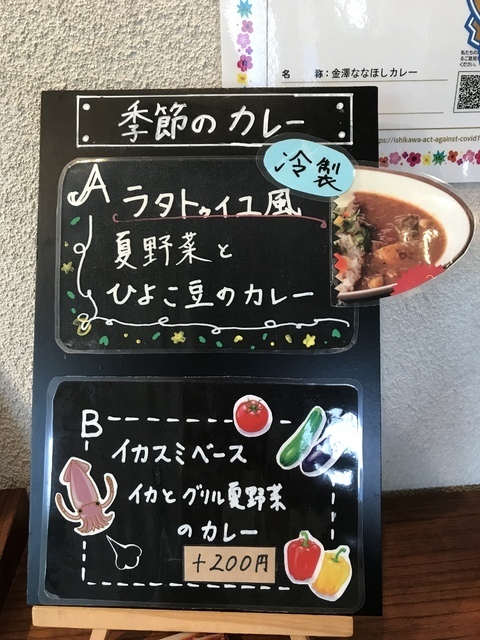 名　　称：金澤ななほしカレー
https://ishikawa-act-against-covid1
季節のカレー
冷製
A
ラタトゥイユ風
夏野菜と
ひよこ豆のカレー
B
イカスミベース
イカとグリル夏野菜
のカレー
+200円